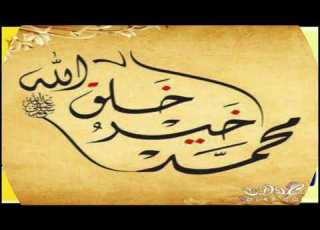 محمد خير خلق الله
ﷺ